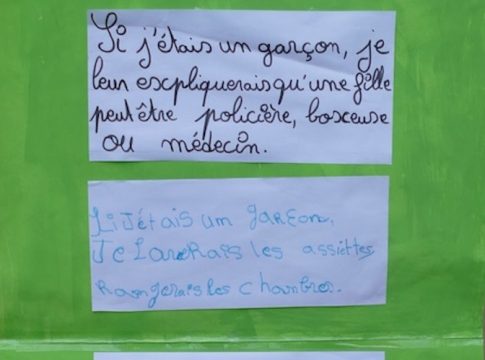 Si j'étais un garçon, je
leur escpliquerais qu'une fille
peut être policière, boxeuse
ou médecin.
Si Jétais un garçon,
Je Laverais les assiettes
Rangerais les chambres.